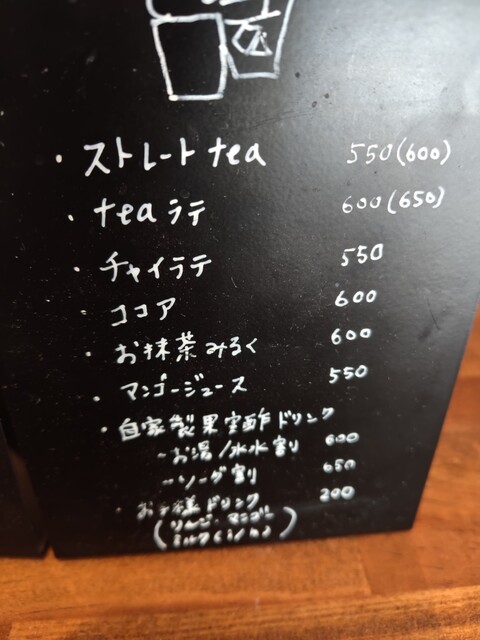 ・ストレートtea 550(600)
・teaラテ 600(650)
・チャイラテ 550
・ココア 600
・お抹茶みるく 600
・マンゴージュース 550
・自家製果実酢ドリンク
-お湯/水水割り 600
-ソーダ割り 650
・お子様ドリンク 200
(りんご・マンゴー
ミルク